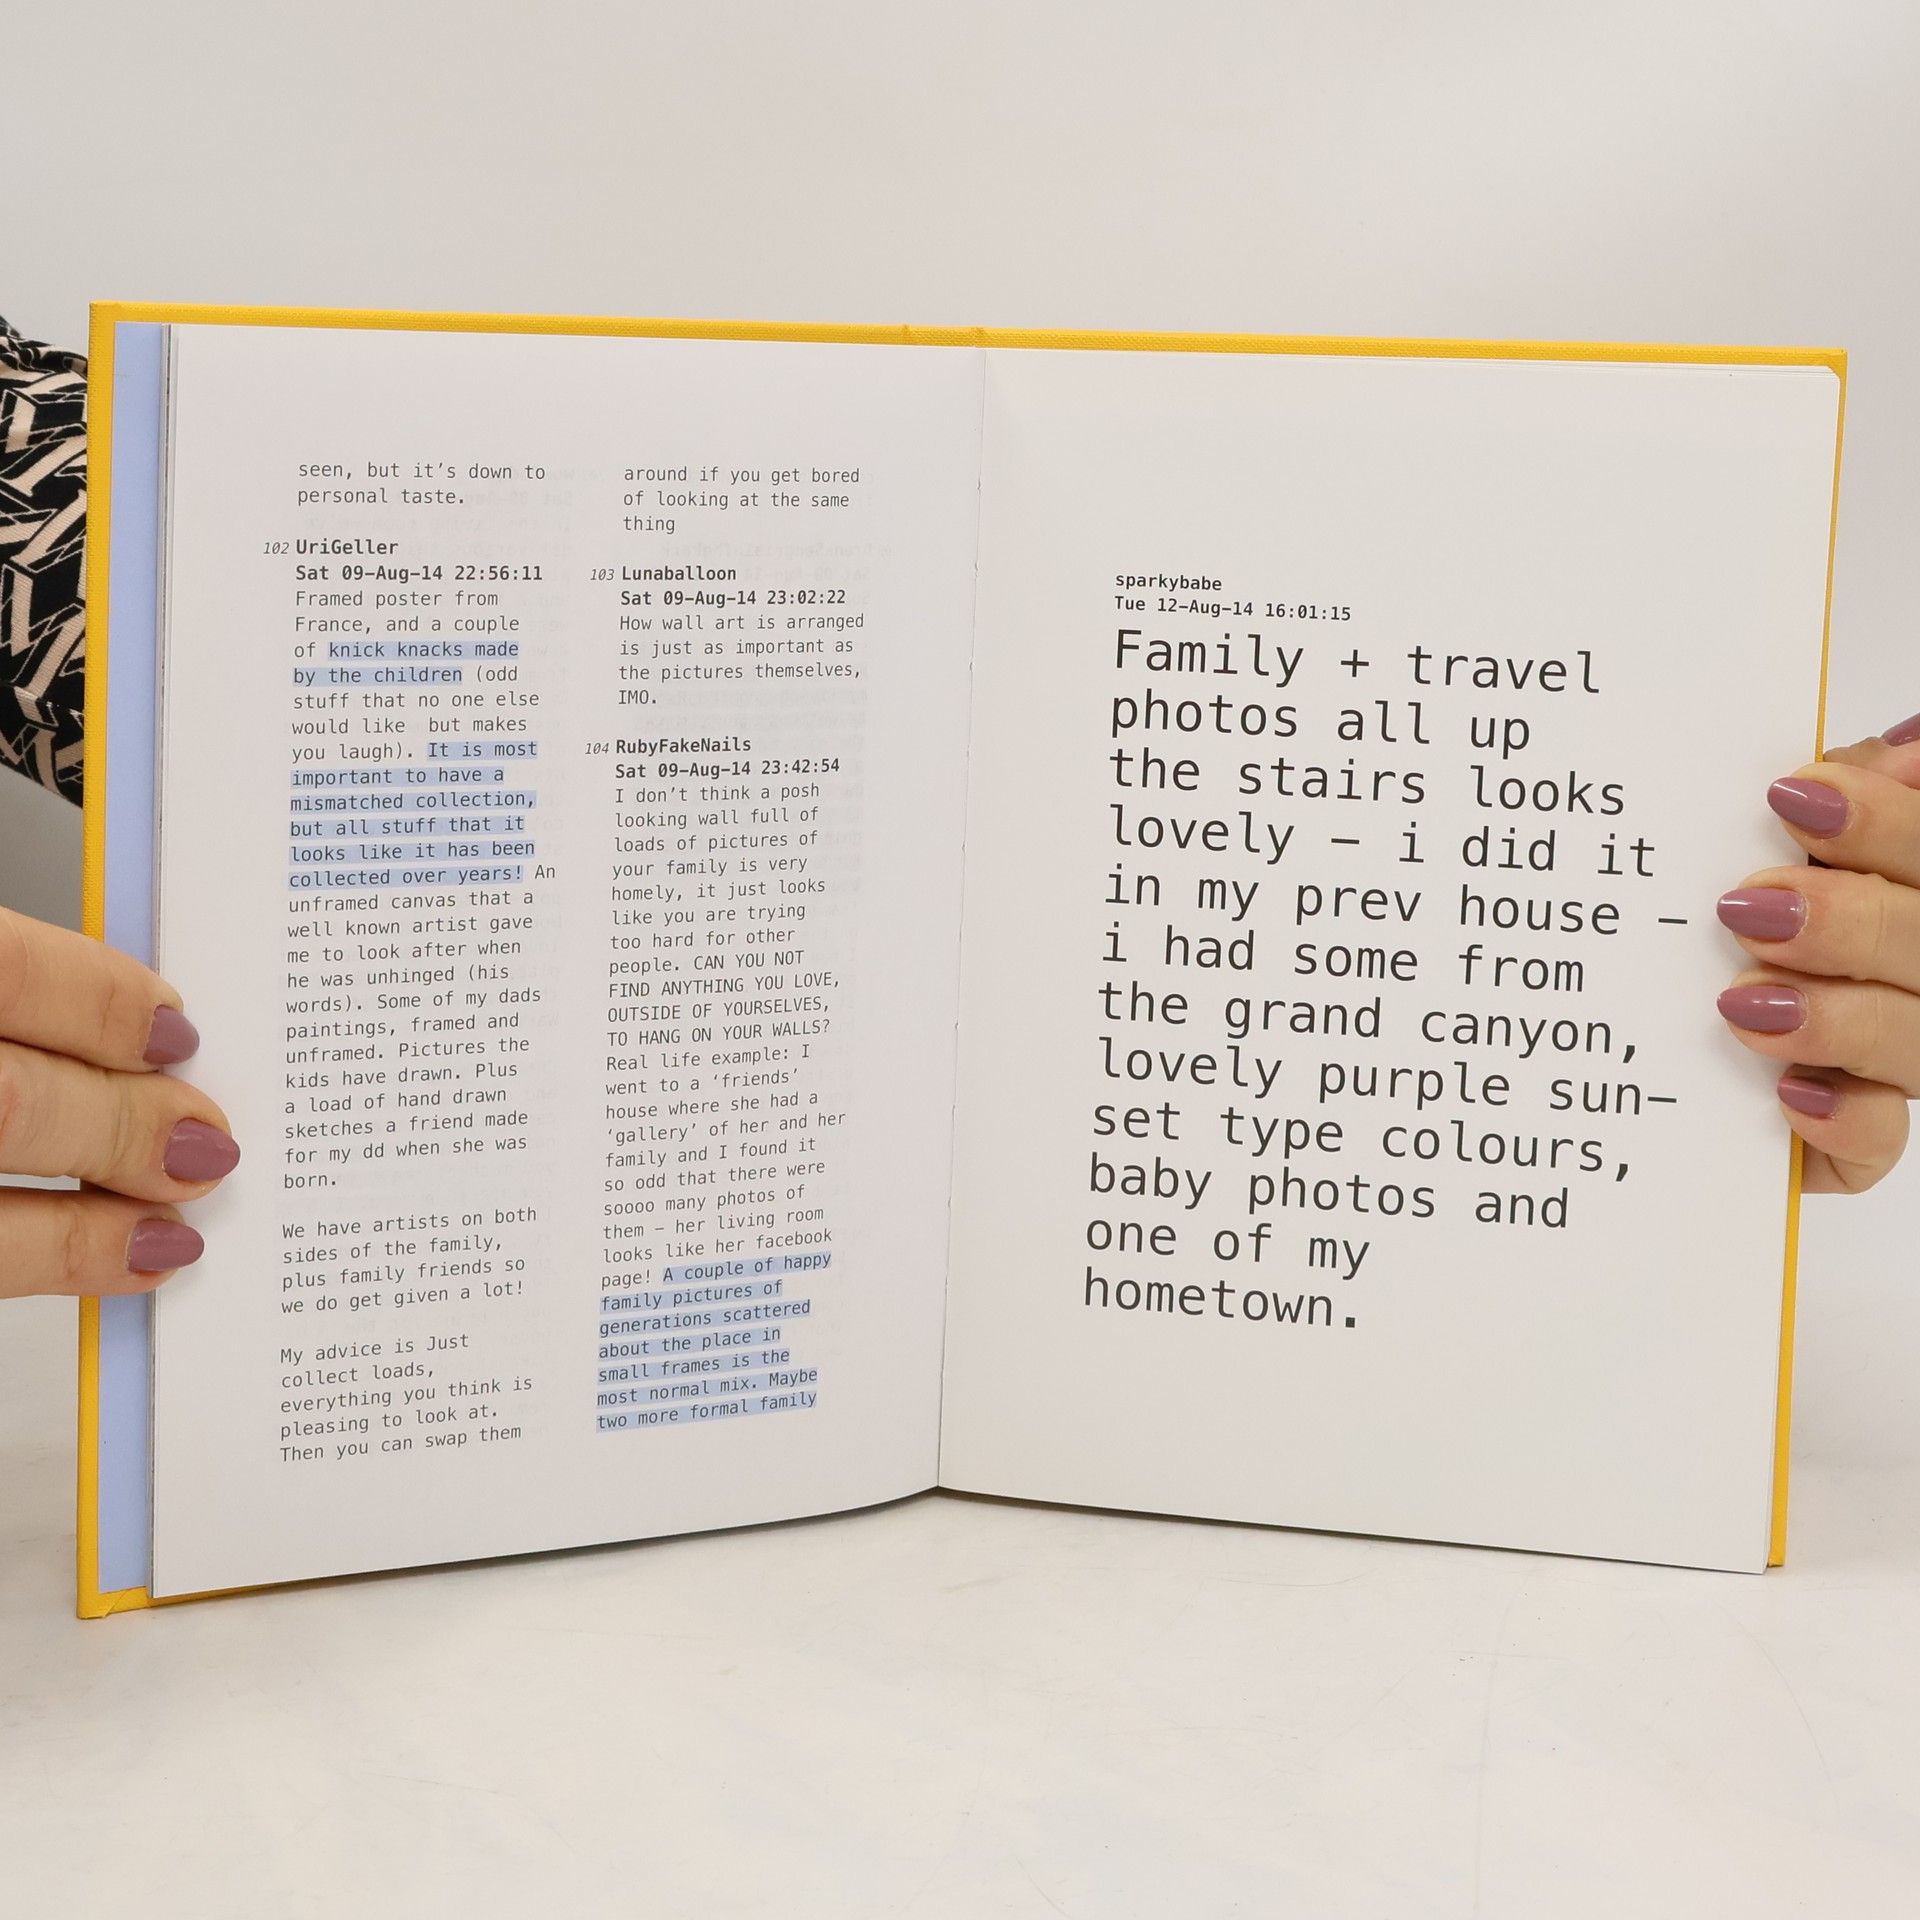 seen, but it's down to
personal taste.
102 UriGeller
Sat 09-Aug-14 22:56:11
Framed poster from
France, and a couple
of knick knacks made
by the children (odd
stuff that no one else
would like but makes
you laugh). It is most
important to have a
mismatched collection,
but all stuff that it
looks like it has been
collected over years! An
unframed canvas that a
well known artist gave
me to look after when
he was unhinged (his
words). Some of my dads
paintings, framed and
unframed. Pictures the
kids have drawn. Plus
a load of hand drawn
sketches a friend made
for my dd when she was
born.
We have artists on both
sides of the family,
plus family friends so
we do get given a lot!
My advice is Just
collect loads,
everything you think is
pleasing to look at.
Then you can swap them
around if you get bored
of looking at the same
thing
103 Lunaballoon
Sat 09-Aug-14 23:02:22
How wall art is arranged
is just as important as
the pictures themselves,
IMO.
104 RubyFakeNails
Sat 09-Aug-14 23:42:54
I don't think a posh
looking wall full of
loads of pictures of
your family is very
homely, it just looks
like you are trying
too hard for other
people. CAN YOU NOT
FIND ANYTHING YOU LOVE,
OUTSIDE OF YOURSELVES,
TO HANG ON YOUR WALLS?
Real life example: I
went to a 'friends'
house where she had a
'gallery' of her and her
family and I found it
so odd that there were
soooo many photos of
them – her living room
looks like her facebook
page! A couple of happy
family pictures of
generations scattered
about the place in
small frames is the
most normal mix. Maybe
two more formal family
sparkybabe
Tue 12-Aug-14 16:01:15
Family + travel
photos all up
the stairs looks
lovely – i did it
in my prev house –
i had some from
the grand canyon,
lovely purple sun-
set type colours,
baby photos and
one of my
hometown.